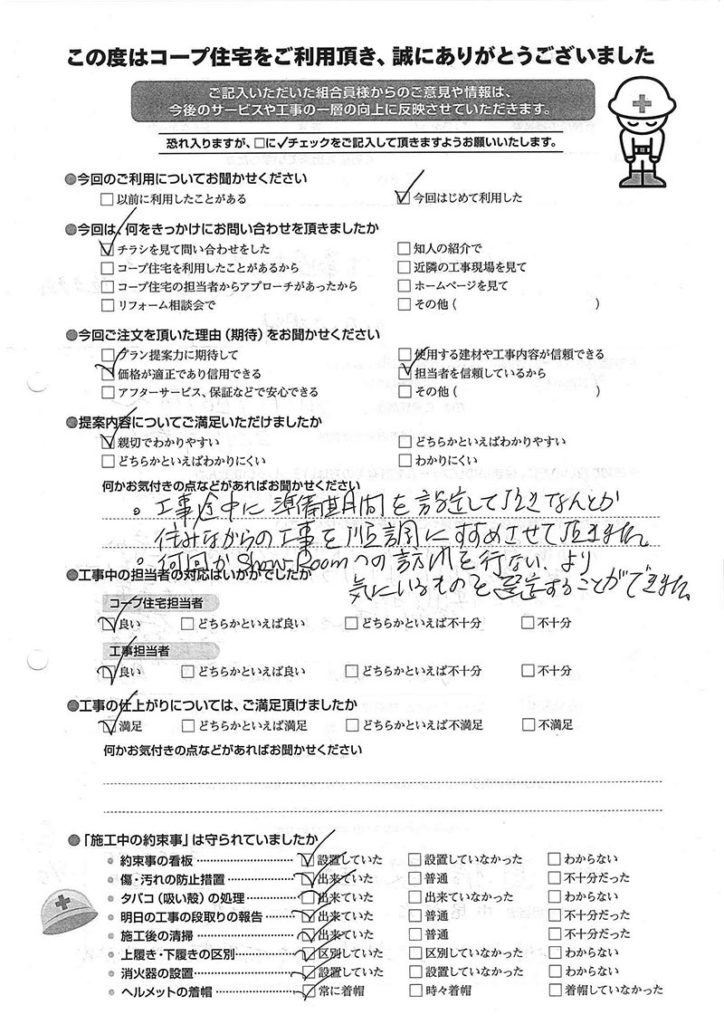 この度はコープ住宅をご利用頂き、誠にありがとうございました
ご記入いただいた組合員様からのご意見や情報は、
今後のサービスや工事の一層の向上に反映させていただきます。
恐れ入りますが、□に✓チェックをご記入して頂きますようお願いいたします。
●今回のご利用についてお聞かせください
□以前に利用したことがある ☑今回はじめて利用した
●今回は、何をきっかけにお問い合わせを頂きましたか
☑チラシを見て問い合わせをした □知人の紹介で
□コープ住宅を利用したことがあるから □近隣の工事現場を見て
□コープ住宅の担当者からアプローチがあったから □ホームページを見て
□リフォーム相談会で □その他( )
●今回ご注文を頂いた理由(期待)をお聞かせください
□プラン提案力に期待して □使用する建材や工事内容が信頼できる
☑価格が適正であり信用できる ☑担当者を信頼しているから
□アフターサービス、保証などで安心できる □その他( )
●提案内容についてご満足いただけましたか
☑親切でわかりやすい □どちらかといえばわかりやすい
□どちらかといえばわかりにくい □わかりにくい
何かお気付きの点などがあればお聞かせください
。工事途中に準備期間を設定して頂きなんとか
住みながらの工事を順調にすすめさせて頂きました。
。何回かShow Roomへの訪問を行ない、より
気にいるものを選定することができました。
●工事中の担当者の対応はいかがでしたか
コープ住宅担当者
☑良い □どちらかといえば良い □どちらかといえば不十分 □不十分
工事担当者
☑良い □どちらかといえば良い □どちらかといえば不十分 □不十分
●工事の仕上がりについては、ご満足頂けましたか
☑満足 □どちらかといえば満足 □どちらかといえば不満足 □不満足
何かお気付きの点などがあればお聞かせください
●「施工中の約束事」は守られていましたか
約束事の看板 ☑設置していた □設置していなかった □わからない
傷・汚れの防止措置 ☑出来ていた □普通 □不十分だった
タバコ(吸い殻)の処理 ☑出来ていた □出来ていなかった □わからない
明日の工事の段取りの報告 ☑出来ていた □普通 □不十分だった
施工後の清掃 ☑出来ていた □普通 □不十分だった
上履き・下履きの区別 ☑区別していた □区別していなかった □わからない
消火器の設置 ☑設置していた □設置していなかった □わからない
ヘルメットの着帽 ☑常に着帽 □時々着帽 □着帽していなかった